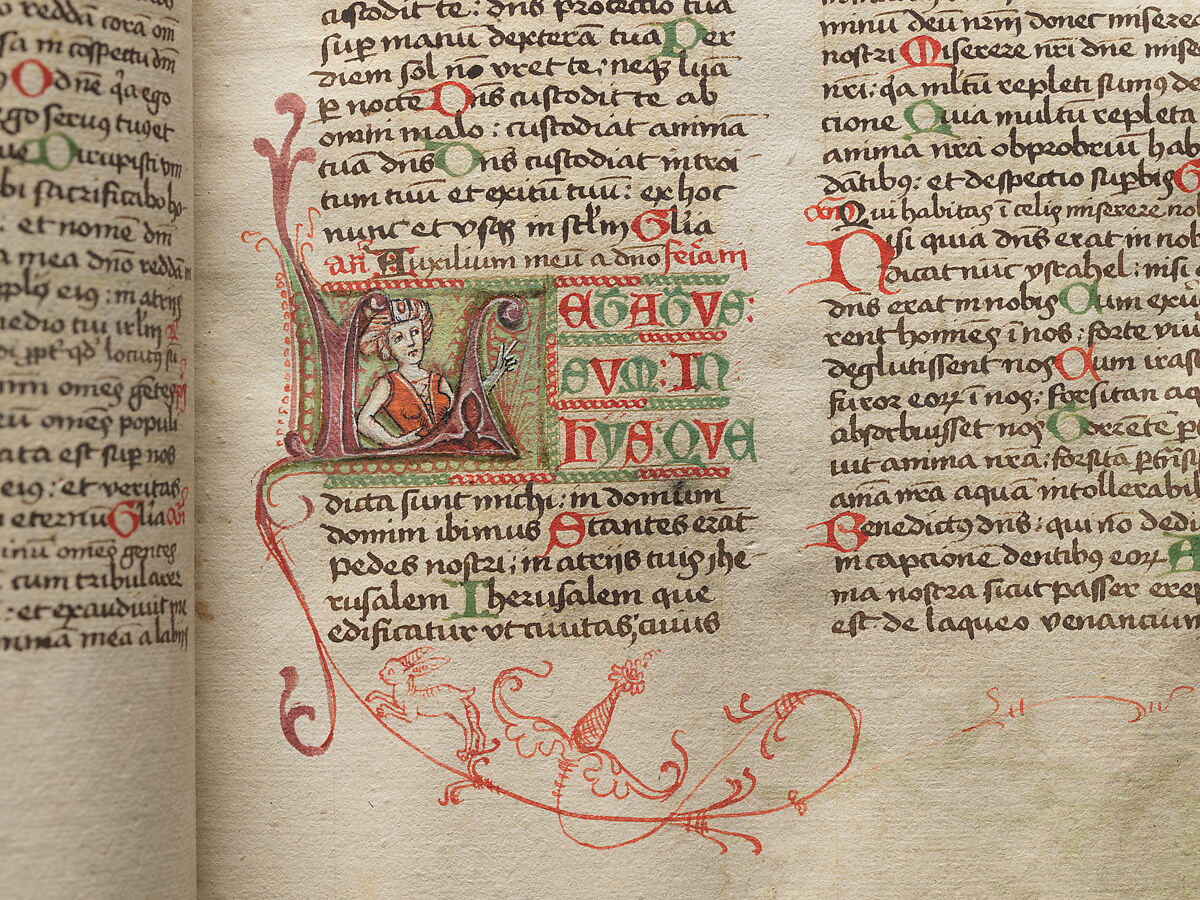 o reddā corā om
sa in cōspectu dm
O dnē q̄a ego
ego seruꝯ tuꝯ et
Dirupisti vin
bi sacrificabo ho
. et nomē dm
a mea dn̄o reddā
eiꝯ : in atrijs
medio tui irl̄m
locutꝯ su
omēs gētes
omēs populi
ata est sup̄ nos
eiꝯ : et veritas
eternū Gl̄ia
omēs gentes
cum tribularer
: et exaudiuit me
mmā meā a labijs
custodit te : dn̄s protectio tua
sup̄ manū dexterā tuā Per
diem sol nō vret te : neqꝫ luā
ꝑ noctē Dn̄s custodit te ab
omni malo : custodiat animā
tuā dn̄s Dn̄s custodiat introi
tum tuū et exitū tuū : ex hoc
nunc et vsqꝫ in scl̄m Gl̄ia
an̄ Auxilium meū a dn̄o feria iii
LETATVS
SVM: IN
HYS: QVE
dicta sunt michi : in domum
domini ibimus Stantes erāt
pedes nostri : in atrijs tuis ihe
rusalem Iherusalem que
edificatur vt ciuitas : cuius
ad dn̄m deū nrm̄ donec miserea
nostri Miserere nr̄i dn̄e mise
nr̄i : qa ml̄tū repleti sumꝯ de
cione Quia multū repleta
amma nr̄a obprobriū hab
dātibꝯ : et despectio suꝑbis G
an̄ Qui habitas ī celis miserere no
Nisi quia dn̄s erat in nob
dicat nūc ysrahel : nisi
dn̄s erat in nobis Cum exu
rent homēs ī nos : forte viu
deglutissent nos Cum iras
furor eorꝝ ī nos : forsitan aq
absorbuisset nos Torrētē ꝑt
iuit amma nr̄a : forsitā ꝑtrās
amā nr̄a aquā intollerabil
Benedictꝯ dn̄s : qui nō dedi
in capcione dentibꝯ eorꝝ A
ma nostra sicut passer erep
est de laqueo venancium